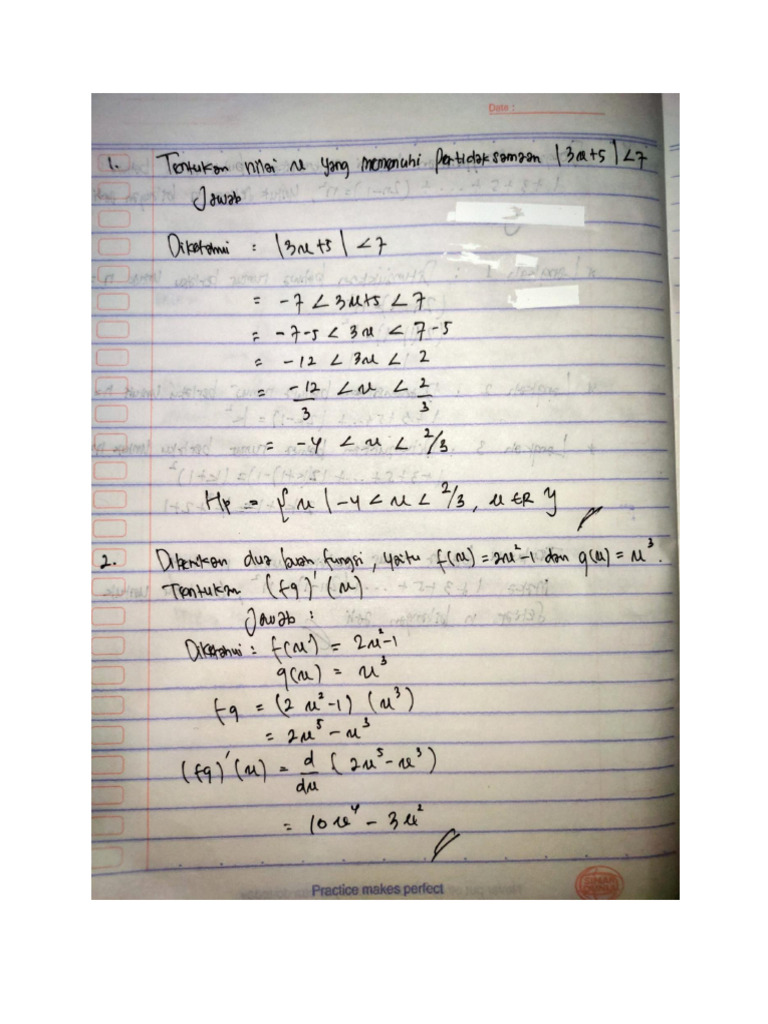 Date :
1. Tentukan nilai x yang memenuhi pertidaksamaan |3x+5| < 7
Jawab
Diketahui : |3x+5| < 7
= -7 < 3x+5 < 7
= -7-5 < 3x < 7-5
= -12 < 3x < 2
= -12/3 < x < 2/3
= -4 < x < 2/3
Hp = { x | -4 < x < 2/3, x ∈ R }
2. Diberikan dua buah fungsi, yaitu f(x) = 2x²-1 dan g(x) = x³.
Tentukan (fg)'(x)
Jawab :
Diketahui : f(x) = 2x²-1
g(x) = x³
fg = (2x²-1) (x³)
= 2x⁵ - x³
(fg)'(x) = d/dx (2x⁵ - x³)
= 10x⁴ - 3x²
Practice makes perfect
SINAR DUNIA